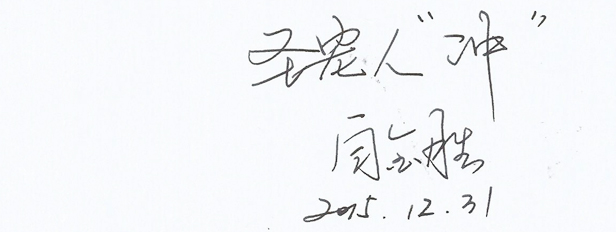 圣宠人“冲”
2015.12.31